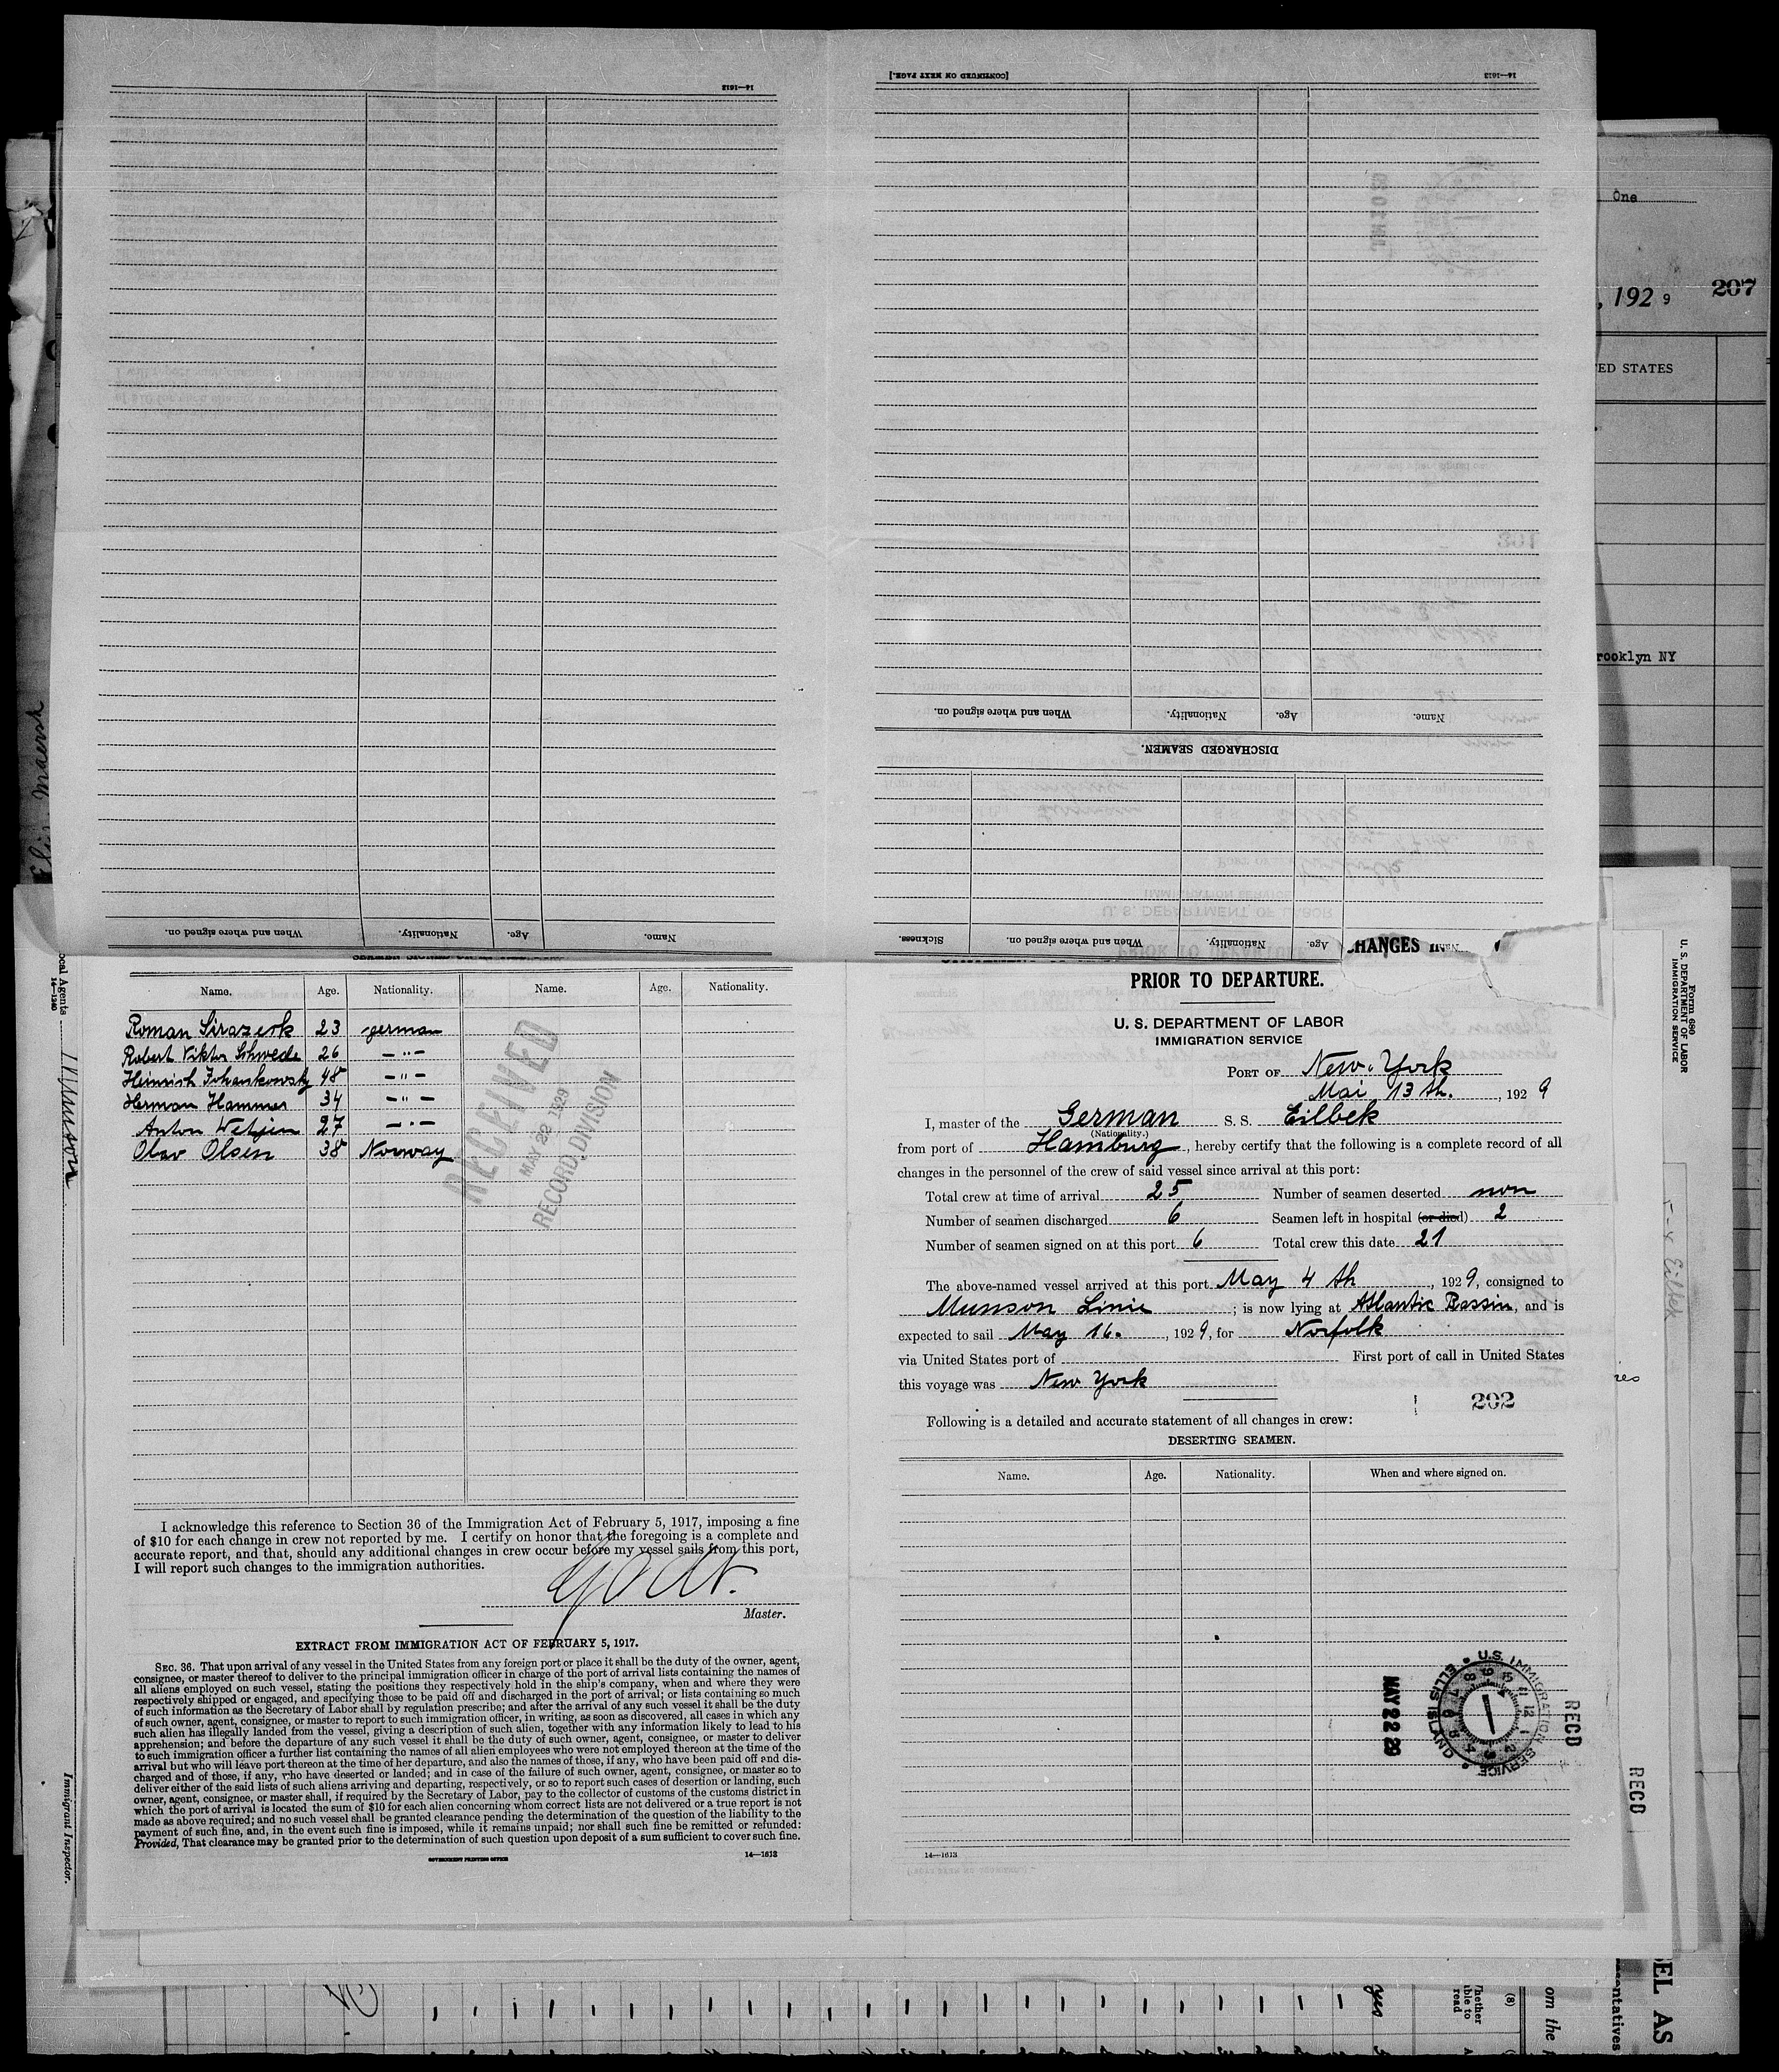 14—1613
[CONTINUED ON NEXT PAGE.]
14—1613
One
, 192 9
207
ED STATES
rooklyn NY
When and where signed on.
Nationality.
Age.
Name.
DISCHARGED SEAMEN.
When and where signed on.
Nationality.
Age.
Name.
Sickness.
When and where signed on.
Nationality.
Age.
HANGES IN
PRIOR TO DEPARTURE.
U. S. DEPARTMENT OF LABOR
IMMIGRATION SERVICE
PORT OF New-York
Mai 13 th. , 192 9
I, master of the German S. S. Eilbek
(Nationality.)
from port of Hamburg , hereby certify that the following is a complete record of all
changes in the personnel of the crew of said vessel since arrival at this port:
Total crew at time of arrival 25 Number of seamen deserted non
Number of seamen discharged 6 Seamen left in hospital (or died) 2
Number of seamen signed on at this port 6 Total crew this date 21
The above-named vessel arrived at this port May 4 th , 192 9, consigned to
Munson Linie ; is now lying at Atlantic Bassin, and is
expected to sail May 16. , 192 9, for Norfolk
via United States port of First port of call in United States
this voyage was New York
202
Following is a detailed and accurate statement of all changes in crew:
DESERTING SEAMEN.
Name. Age. Nationality. When and where signed on.
MAY 22 29
U.S. IMMIGRATION SERVICE
ELLIS ISLAND
RECD
RECD
14—1613
Name. Age. Nationality. Name. Age. Nationality.
Roman Sirazesk 23 german
Robert Viktor Schwede 26 – " –
Heinrich Johankowsky 48 – " –
Herman Hammer 34 – " –
Anton Wetjen 27 – " –
Olav Olsen 38 Norway
RECEIVED
MAY 22 1929
RECORD DIVISION
I acknowledge this reference to Section 36 of the Immigration Act of February 5, 1917, imposing a fine
of $10 for each change in crew not reported by me. I certify on honor that the foregoing is a complete and
accurate report, and that, should any additional changes in crew occur before my vessel sails from this port,
I will report such changes to the immigration authorities.
Master.
EXTRACT FROM IMMIGRATION ACT OF FEBRUARY 5, 1917.
SEC. 36. That upon arrival of any vessel in the United States from any foreign port or place it shall be the duty of the owner, agent,
consignee, or master thereof to deliver to the principal immigration officer in charge of the port of arrival lists containing the names of
all aliens employed on such vessel, stating the positions they respectively hold in the ship's company, when and where they were
respectively shipped or engaged, and specifying those to be paid off and discharged in the port of arrival; or lists containing so much
of such information as the Secretary of Labor shall by regulation prescribe; and after the arrival of any such vessel it shall be the duty
of such owner, agent, consignee, or master to report to such immigration officer, in writing, as soon as discovered, all cases in which any
such alien has illegally landed from the vessel, giving a description of such alien, together with any information likely to lead to his
apprehension; and before the departure of any such vessel it shall be the duty of such owner, agent, consignee, or master to deliver
to such immigration officer a further list containing the names of all alien employees who were not employed thereon at the time of the
arrival but who will leave port thereon at the time of her departure, and also the names of those, if any, who have been paid off and dis-
charged and of those, if any, who have deserted or landed; and in case of the failure of such owner, agent, consignee, or master so to
deliver either of the said lists of such aliens arriving and departing, respectively, or so to report such cases of desertion or landing, such
owner, agent, consignee, or master shall, if required by the Secretary of Labor, pay to the collector of customs of the customs district in
which the port of arrival is located the sum of $10 for each alien concerning whom correct lists are not delivered or a true report is not
made as above required; and no such vessel shall be granted clearance pending the determination of the question of the liability to the
payment of such fine, and, in the event such fine is imposed, while it remains unpaid; nor shall such fine be remitted or refunded:
Provided, That clearance may be granted prior to the determination of such question upon deposit of a sum sufficient to cover such fine.
GOVERNMENT PRINTING OFFICE
14—1613
Maersk
ocal Agents
14—1240
Munson
Immigrant Inspector.
Form 680
U. S. DEPARTMENT OF LABOR
IMMIGRATION SERVICE
Eilbek
yes
(8)
Whether
able to
read
om the
sentatives
EL AS